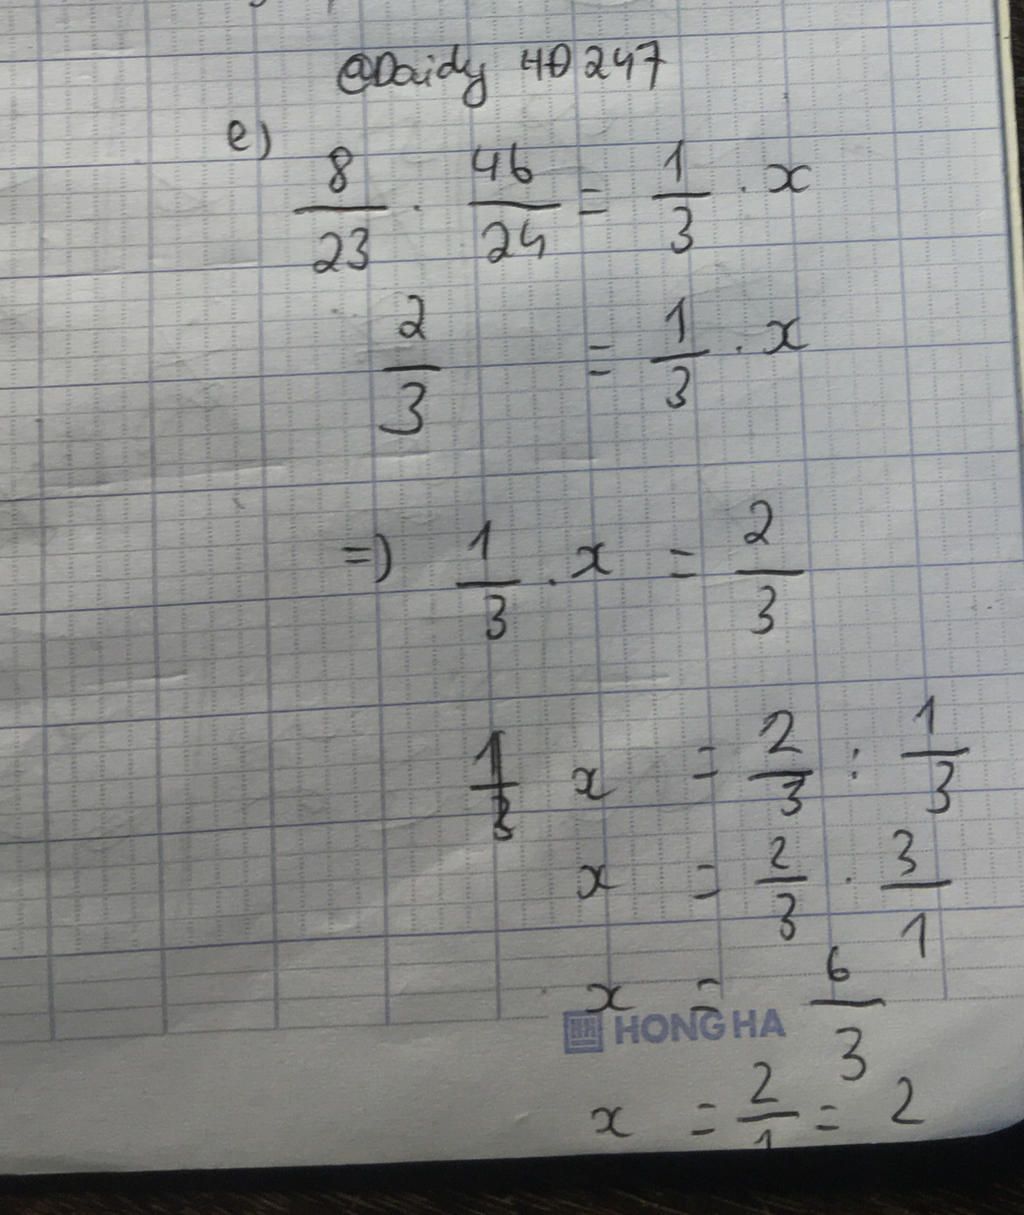 @Daidy 4D247
e)
8/23 . 46/24 = 1/3 . x
2/3 = 1/3 . x
=) 1/3 . x = 2/3
1/3 x = 2/3 : 1/3
x = 2/3 . 3/1
x = 6/3
HONG HA
x = 2/1 = 2